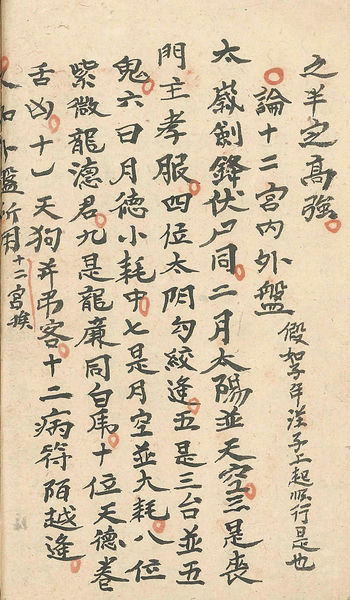 之半之高強
論十二宮內外盤 假如子年從子上起順行是也
太歲劍鋒伏尸同二月太陽並天空三是喪
門主孝服四位太阴勾絞逢五是三台並五
鬼六曰月德小耗中七是月空並大耗八位
紫微龍德君九是飛廉同白虎十位天德卷
舌凶十一天狗并吊客十二病符陌越逢
盤所用十二宮挨